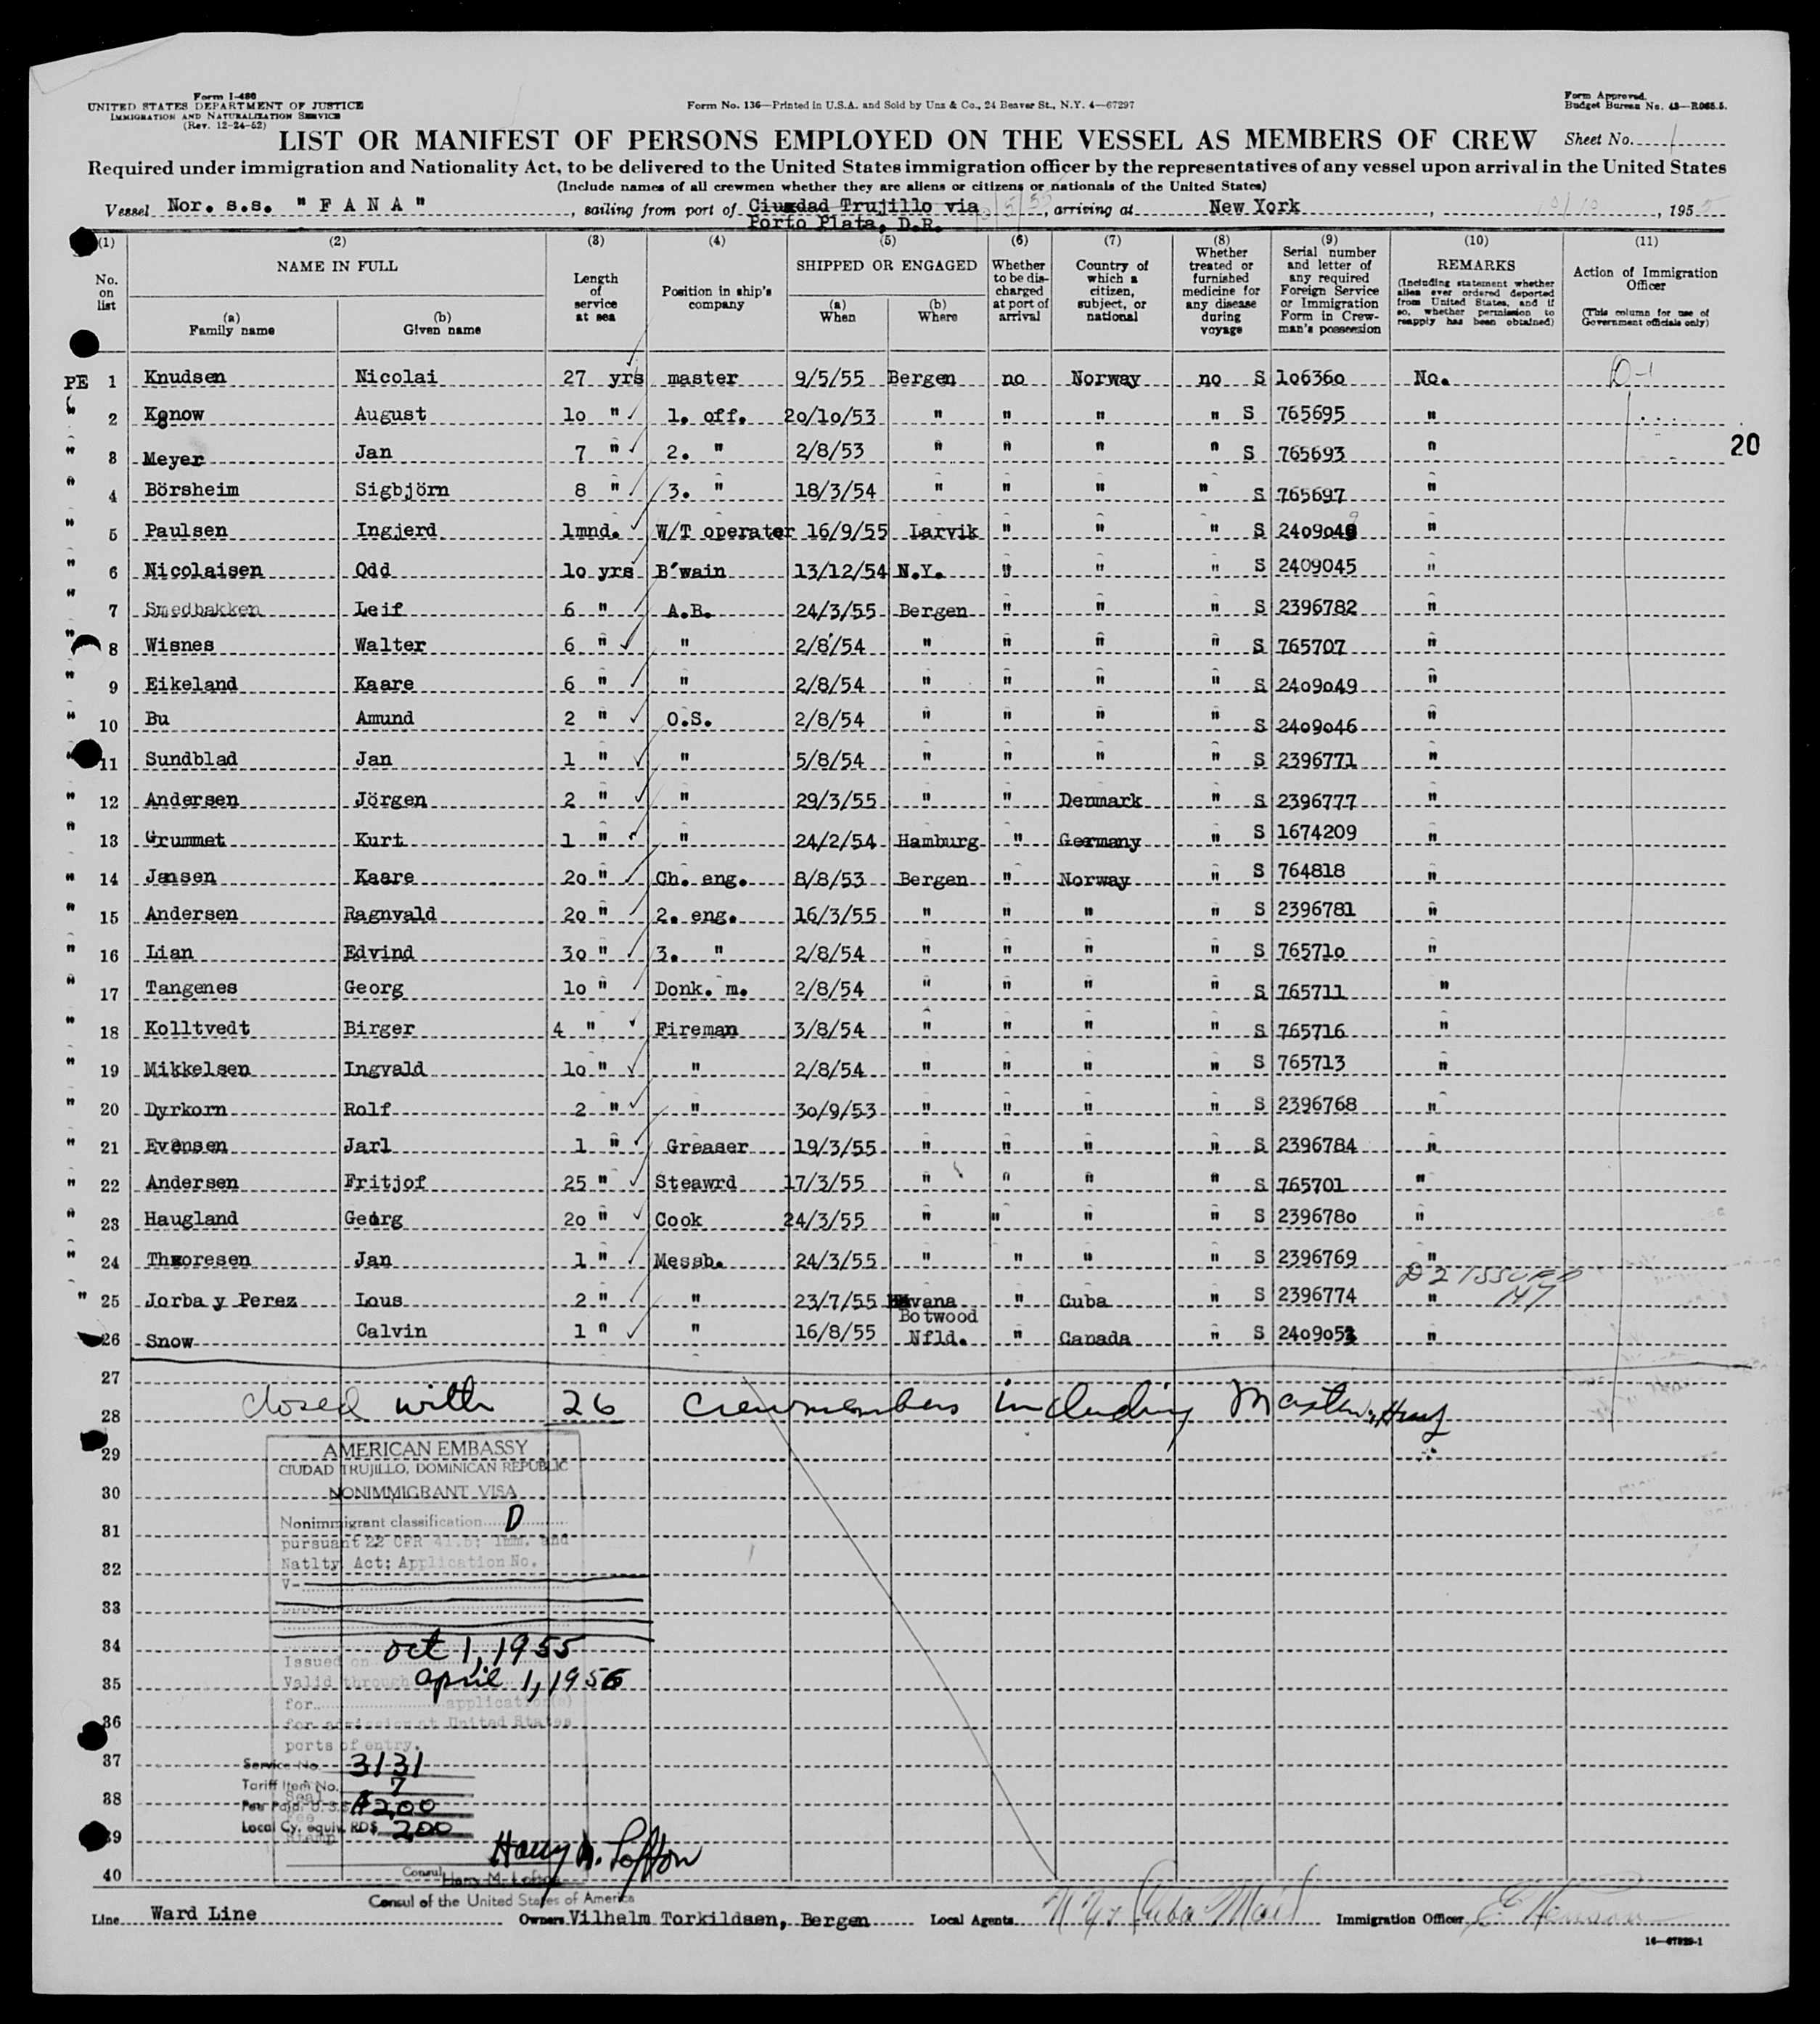 Form I-480
UNITED STATES DEPARTMENT OF JUSTICE
IMMIGRATION AND NATURALIZATION SERVICE
(Rev. 12-24-52)
Form No. 136—Printed in U.S.A. and Sold by Unz & Co., 24 Beaver St., N.Y. 4—67297
Form Approved.
Budget Bureau No. 43—R065.5.
LIST OR MANIFEST OF PERSONS EMPLOYED ON THE VESSEL AS MEMBERS OF CREW
Sheet No. 1
Required under immigration and Nationality Act, to be delivered to the United States immigration officer by the representatives of any vessel upon arrival in the United States
(Include names of all crewmen whether they are aliens or citizens or nationals of the United States)
Vessel Nor. s.s. "FANA", sailing from port of Ciudad Trujillo via, arriving at New York, 10/10, 1955
Porto Plata, D.R.
(1) (2) (3) (4) (5) (6) (7) (8) (9) (10) (11)
No. on list
NAME IN FULL
(a) Family name
(b) Given name
Length of service at sea
Position in ship's company
SHIPPED OR ENGAGED
(a) When
(b) Where
Whether to be discharged at port of arrival
Country of which a citizen, subject, or national
Whether treated or furnished medicine for any disease during voyage
Serial number and letter of any required Foreign Service or Immigration Form in Crewman's possession
REMARKS
(Including statement whether alien ever ordered deported from United States, and if so, whether permission to reapply has been obtained)
Action of Immigration Officer
(This column for use of Government officials only)
PE 1 Knudsen Nicolai 27 yrs master 9/5/55 Bergen no Norway no S 106360 No. D-1
" 2 Konow August 10 " 1. off. 20/10/53 " " " " S 765695 "
" 3 Meyer Jan 7 " 2. " 2/8/53 " " " " S 765693 "
20
" 4 Börsheim Sigbjörn 8 " 3. " 18/3/54 " " " " S 765697 "
" 5 Paulsen Ingjerd 1mnd. W/T operater 16/9/55 Larvik " " " S 2409049 "
" 6 Nicolaisen Odd 10 yrs B'wain 13/12/54 N.Y. " " " S 2409045 "
" 7 Smedbakken Leif 6 " A.B. 24/3/55 Bergen " " " S 2396782 "
" 8 Wisnes Walter 6 " " 2/8/54 " " " " S 765707 "
" 9 Eikeland Kaare 6 " " 2/8/54 " " " " S 2409049 "
" 10 Bu Amund 2 " O.S. 2/8/54 " " " " S 2409046 "
" 11 Sundblad Jan 1 " " 5/8/54 " " " " S 2396771 "
" 12 Andersen Jörgen 2 " " 29/3/55 " " Denmark " S 2396777 "
" 13 Grummet Kurt 1 " " 24/2/54 Hamburg " Germany " S 1674209 "
" 14 Jansen Kaare 20 " Ch. eng. 8/8/53 Bergen " Norway " S 764818 "
" 15 Andersen Ragnvald 20 " 2. eng. 16/3/55 " " " " S 2396781 "
" 16 Lian Edvind 30 " 3. " 2/8/54 " " " " S 765710 "
" 17 Tangenes Georg 10 " Donk. m. 2/8/54 " " " " S 765711 "
" 18 Kolltvedt Birger 4 " Fireman 3/8/54 " " " " S 765716 "
" 19 Mikkelsen Ingvald 10 " " 2/8/54 " " " " S 765713 "
" 20 Dyrkorn Rolf 2 " " 30/9/53 " " " " S 2396768 "
" 21 Evensen Jarl 1 " Greaser 19/3/55 " " " " S 2396784 "
" 22 Andersen Fritjof 25 " Steawrd 17/3/55 " " " " S 765701 "
" 23 Haugland Georg 20 " Cook 24/3/55 " " " " S 2396780 "
" 24 Thxoresen Jan 1 " Messb. 24/3/55 " " " " S 2396769 "
D2 ISSUED
" 25 Jorba y Perez Lous 2 " " 23/7/55 Havana " Cuba " S 2396774 "
26 Snow Calvin 1 " " 16/8/55 Botwood Nfld. " Canada " S 2409053 "
27
28 closed with 26 crewmembers including Master.
29
30
31
32
33
34
35
36
37
38
39
40
AMERICAN EMBASSY
CIUDAD TRUJILLO, DOMINICAN REPUBLIC
NONIMMIGRANT VISA
Nonimmigrant classification D
pursuant 22 CFR 41.5; Imm. and
Natlty Act; Application No.
V-
Issued on oct 1, 1955
Valid through april 1, 1956
for application(s)
for admission at United States
ports of entry.
Service No. 3131
Tariff Item No. 7
Fee Paid: U.S. $ 2.00
Local Cy. equiv. RD$ 2.00
Harry M. Lofton
Consul Harry M. Lofton
Consul of the United States of America
Line Ward Line Owners Vilhelm Torkildsen, Bergen Local Agents N.Y. & Cuba Mail Immigration Officer
16—67829-1